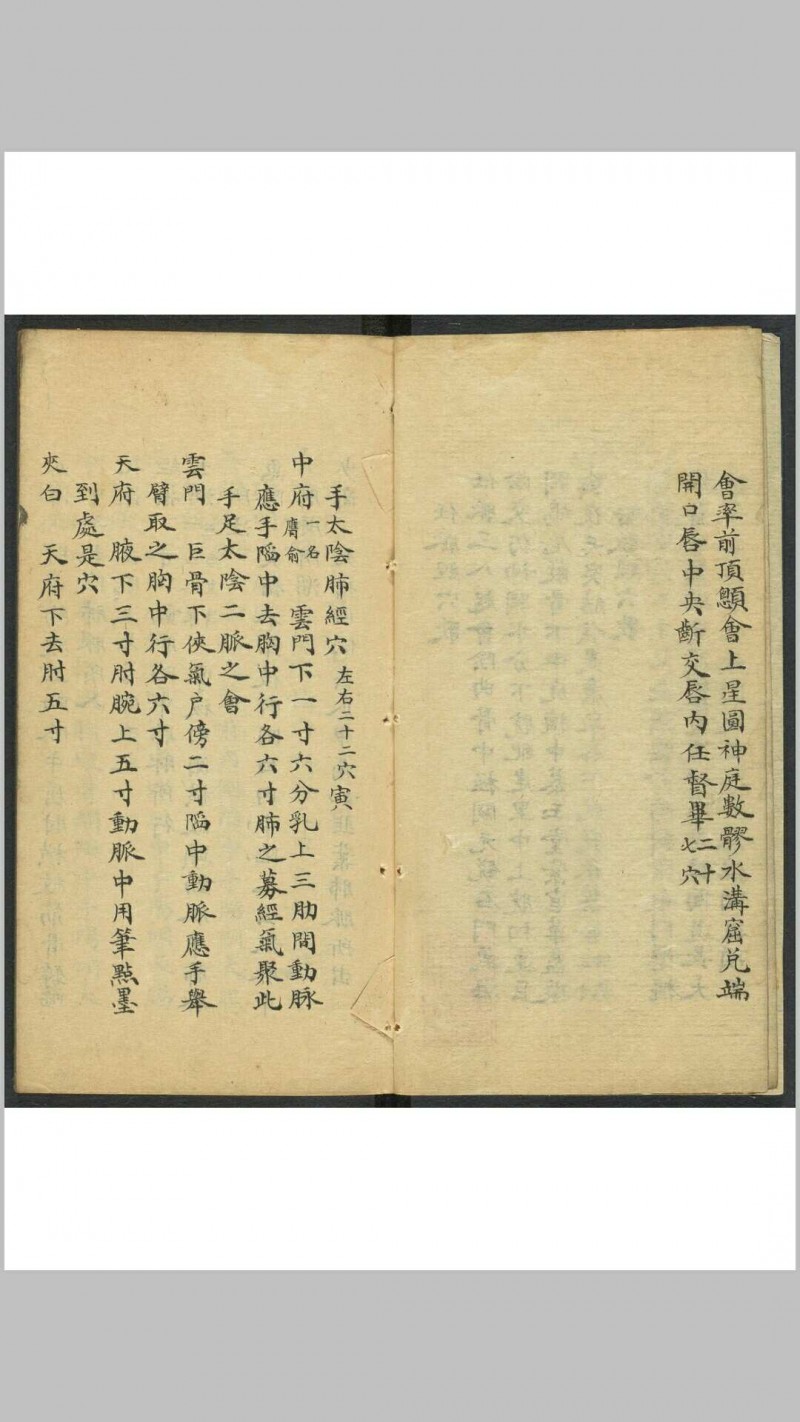 會率前頂顖會上星圓神庭數髎水溝窟兌端
開口唇中央齗交唇內任督畢二十七穴
手太陰肺經穴左右二十二穴寅
中府一名膺俞 雲門下一寸六分乳上三肋間動脉
應手陷中去胸中行各六寸肺之募經氣聚此
手足太陰二脈之會
雲門 巨骨下俠氣户傍二寸陷中動脈應手舉
臂取之胸中行各六寸
天府 腋下三寸肘腕上五寸動脈中用筆點墨
到處是穴
夾白 天府下去肘五寸